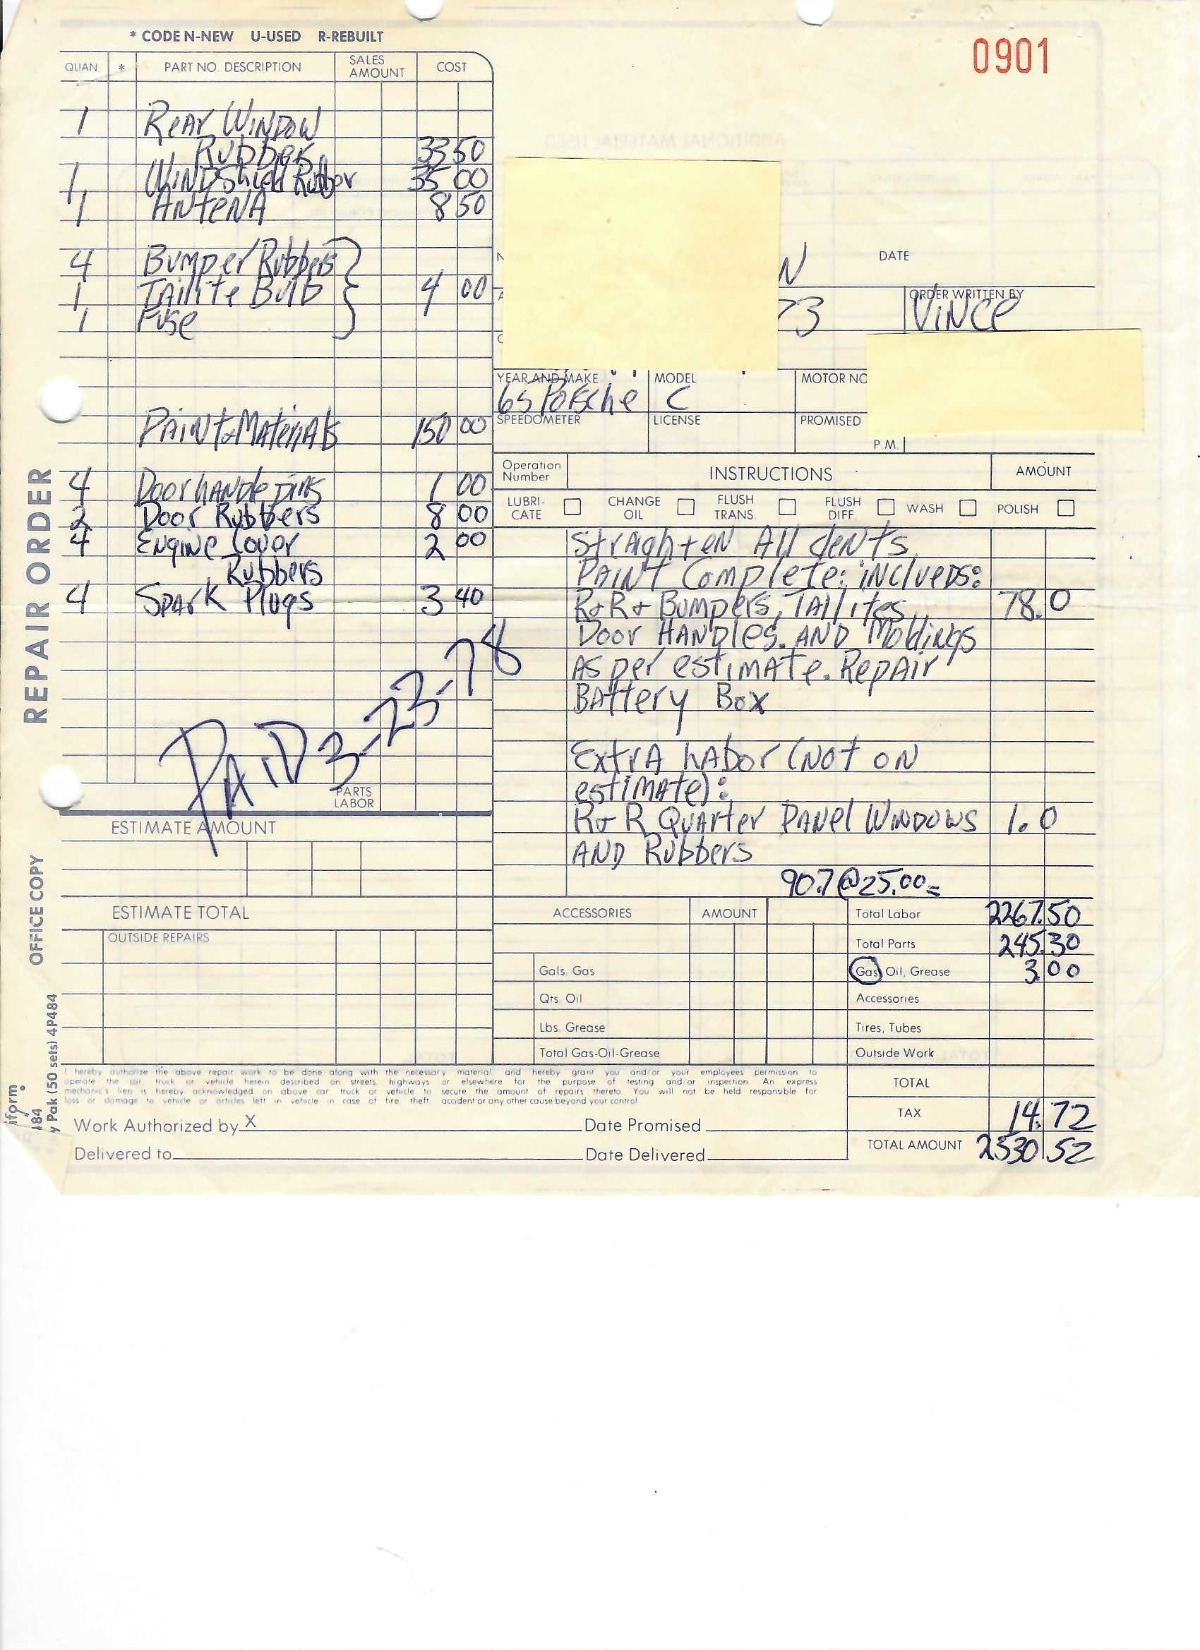 * CODE N-NEW U-USED R-REBUILT
0901
QUAN * PART NO. DESCRIPTION SALES AMOUNT COST
1 REAR WINDOW
Rubber 33 50
1 WINDShield Rubber 35 00
1 ANTENA 8 50
4 Bumper Rubbers
1 Tailite Bulb 4 00
1 Fuse
PAINT & MAteriAls 150 00
4 Door HANDle pins 1 00
2 Door Rubbers 8 00
4 ENgiNe Cover 2 00
Rubbers
4 SPARK Plugs 3 40
PAID 3-23-78
PARTS
LABOR
ESTIMATE AMOUNT
ESTIMATE TOTAL
OUTSIDE REPAIRS
REPAIR ORDER
OFFICE COPY
y Pak (50 sets) 4P484
iform
484
N DATE
73 ORDER WRITTEN BY
VINCe
YEAR AND MAKE MODEL MOTOR NO
65 Porsche C
SPEEDOMETER LICENSE PROMISED
P.M.
Operation Number INSTRUCTIONS AMOUNT
LUBRI-CATE CHANGE OIL FLUSH TRANS. FLUSH DIFF. WASH POLISH
StRAghten All dents
PAINT Complete: iNclueds:
R+R+ Bumpers, TAIlites 78.0
Door HANDles. AND Moldings
AS per estimate. RepAir
BAttery Box
ExtrA LAbor (Not ON
estiMAte):
R+R QuArter PANel WiNDOWS 1.0
AND Rubbers
90.7@25.00=
ACCESSORIES AMOUNT
Gals. Gas
Qts. Oil
Lbs. Grease
Total Gas-Oil-Grease
Total Labor 2267.50
Total Parts 245.30
Gas, Oil, Grease 3.00
Accessories
Tires, Tubes
Outside Work
TOTAL
TAX 14.72
TOTAL AMOUNT 2530 52
hereby authorize the above repair work to be done along with the necessary material and hereby grant you and/or your employees permission to
operate the car, truck or vehicle herein described on streets, highways or elsewhere for the purpose of testing and/or inspection An express
mechanic's lien is hereby acknowledged on above car truck or vehicle to secure the amount of repairs thereto You will not be held responsible for
loss or damage to vehicle or articles left in vehicle in case of fire theft accident or any other cause beyond your control
Work Authorized by X Date Promised
Delivered to Date Delivered